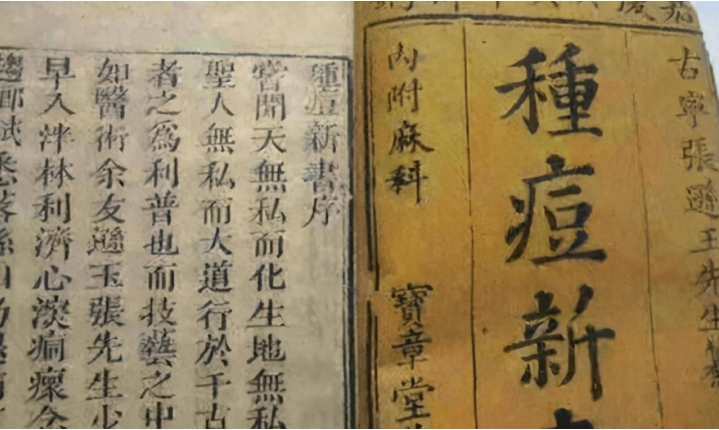 古寧張遜王先生
種痘新
內附麻科
寶章堂
種痘新書序
嘗聞天無私而化生地無私
聖人無私而大道行於千古
者之爲利普也而技藝之中
如醫術余友遜玉張先生少
早入泮林利濟心深痌瘝念
試